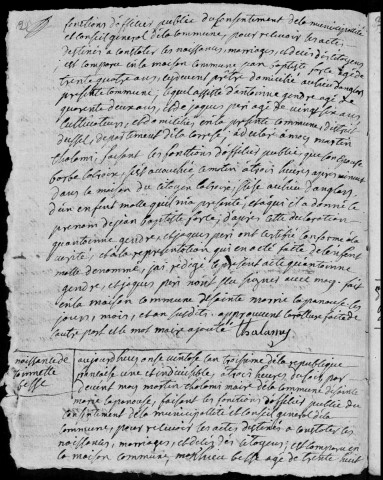 fonctions d'officier publique du consentement de la municipalité
et conseil general de la commune, pour recevoir les actes
destinés a constater les naissances, mariages, et deces des citoyens
est comparu en la maison commune jan baptiste porte agé de
trente quatre ans, cy devant prêtre domicilié au lieu d'anglars
presente commune, lequel assisté d'antoine gendre agé de
quarente deux ans, et de jaques peri agé de vingt six ans
cultivateurs, et domiciliés en la presente commune, district
d'ussel, departement de la correze, a declaré a moy martin
tholomi, faisant les fonctions d'officier publique que son epouse
est accouchée ce matin a trois heures apres minuit
dans la maison du citoyen sise au lieu d'anglars
d'un enfant mole quil m'a presenté, et auquel il a donné le
prenom de jean baptiste porte, d'apres cette declaration
qu'antoinne gendre, et jaques peri ont certifié conforme a la
verité, et a la representation qui m'en a eté faite de l'enfant
mole denommé, jai redigé le present acte qu'antoinne
gendre, et jaques peri n'ont peu signer avec moy, fait
en la maison commune de sainte marie lapanouse les
jours, mois, et an susdits, approuvent la rature faite de
l'autre post et le mot maire ajouté Thalamy
naissance de
tournette
besse
aujourdhuy onse ventose l'an troisieme de la republique
francaise une et indivisible, a trois heures du soir par
devant moy martin tholomi maire de la commune de sainte
marie lapanouse, faisant les fonctions d'officier publique du
consentement de la municipallité et conseil general de la
commune, pour recevoir les actes destinés a constater les
naissances, mariages, et deces des citoyens; est comparu en
la maison commune, mathieu besse agé de trente huit